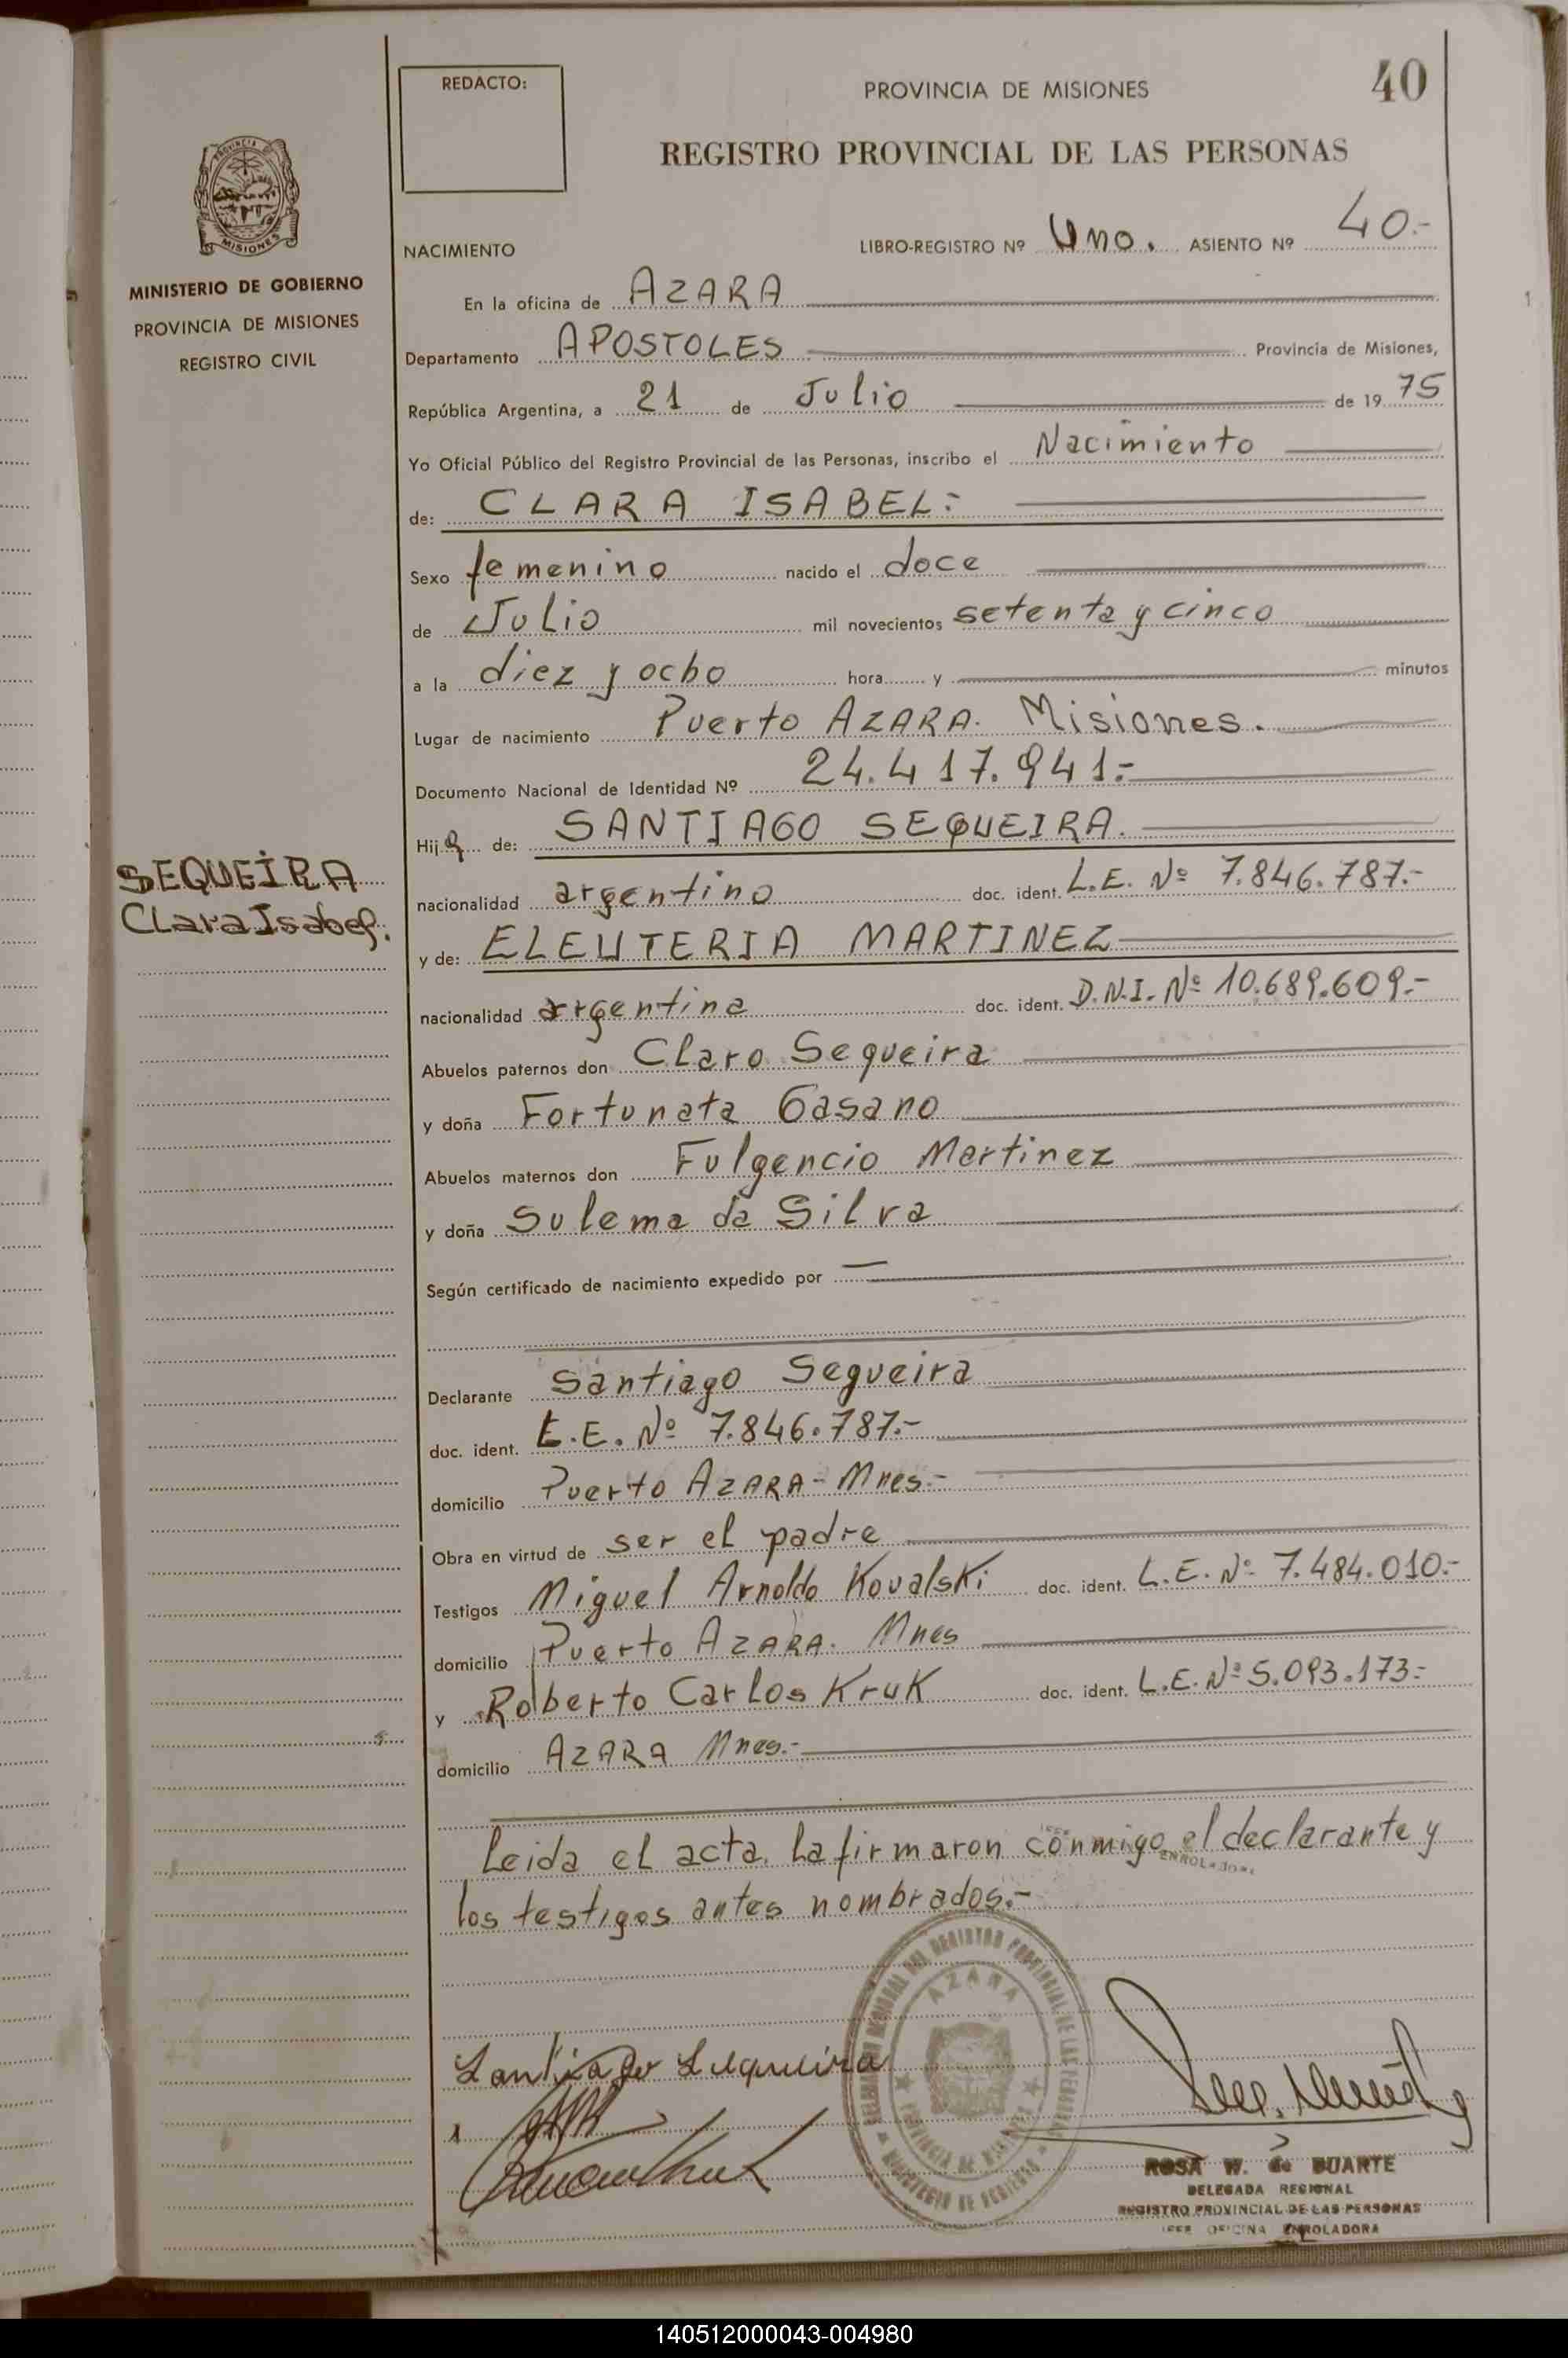 REDACTO:
PROVINCIA DE MISIONES
40
REGISTRO PROVINCIAL DE LAS PERSONAS
PROVINCIA DE
MISIONES
MINISTERIO DE GOBIERNO
PROVINCIA DE MISIONES
REGISTRO CIVIL
NACIMIENTO LIBRO-REGISTRO Nº Uno. ASIENTO Nº 40.-
En la oficina de AZARA
Departamento APOSTOLES Provincia de Misiones,
República Argentina, a 21 de Julio de 19 75
Yo Oficial Público del Registro Provincial de las Personas, inscribo el Nacimiento
de: CLARA ISABEL:
Sexo femenino nacido el doce
de Julio mil novecientos setenta y cinco
a la diez y ocho hora y minutos
Lugar de nacimiento Puerto AZARA. Misiones.
Documento Nacional de Identidad Nº 24.417.941.-
Hija de: SANTIAGO SEQUEIRA.
SEQUEIRA
Clara Isabel.
nacionalidad argentino doc. ident. L.E. Nº 7.846.787.-
y de: ELEUTERIA MARTINEZ
nacionalidad argentina doc. ident. D.N.I. Nº 10.689.609.-
Abuelos paternos don Claro Sequeira
y doña Fortunata Gasano
Abuelos maternos don Fulgencio Martinez
y doña Sulema da Silva
Según certificado de nacimiento expedido por —
Declarante Santiago Sequeira
doc. ident. L.E. Nº 7.846.787.-
domicilio Puerto AZARA-Mnes.-
Obra en virtud de ser el padre
Testigos Miguel Arnoldo Kovalski doc. ident. L.E. Nº 7.484.010.-
domicilio Puerto AZARA. Mnes
y Roberto Carlos Kruk doc. ident. L.E. Nº 5.093.173.-
domicilio AZARA Mnes.-
Leida el acta, la firmaron conmigo el declarante y
los testigos antes nombrados.-
Santiago Sequeira
AZARA
PROVINCIA DE MISIONES
MINISTERIO DE GOBIERNO
ROSA W. de DUARTE
DELEGADA REGIONAL
REGISTRO PROVINCIAL DE LAS PERSONAS
OFICINA ENROLADORA
140512000043-004980